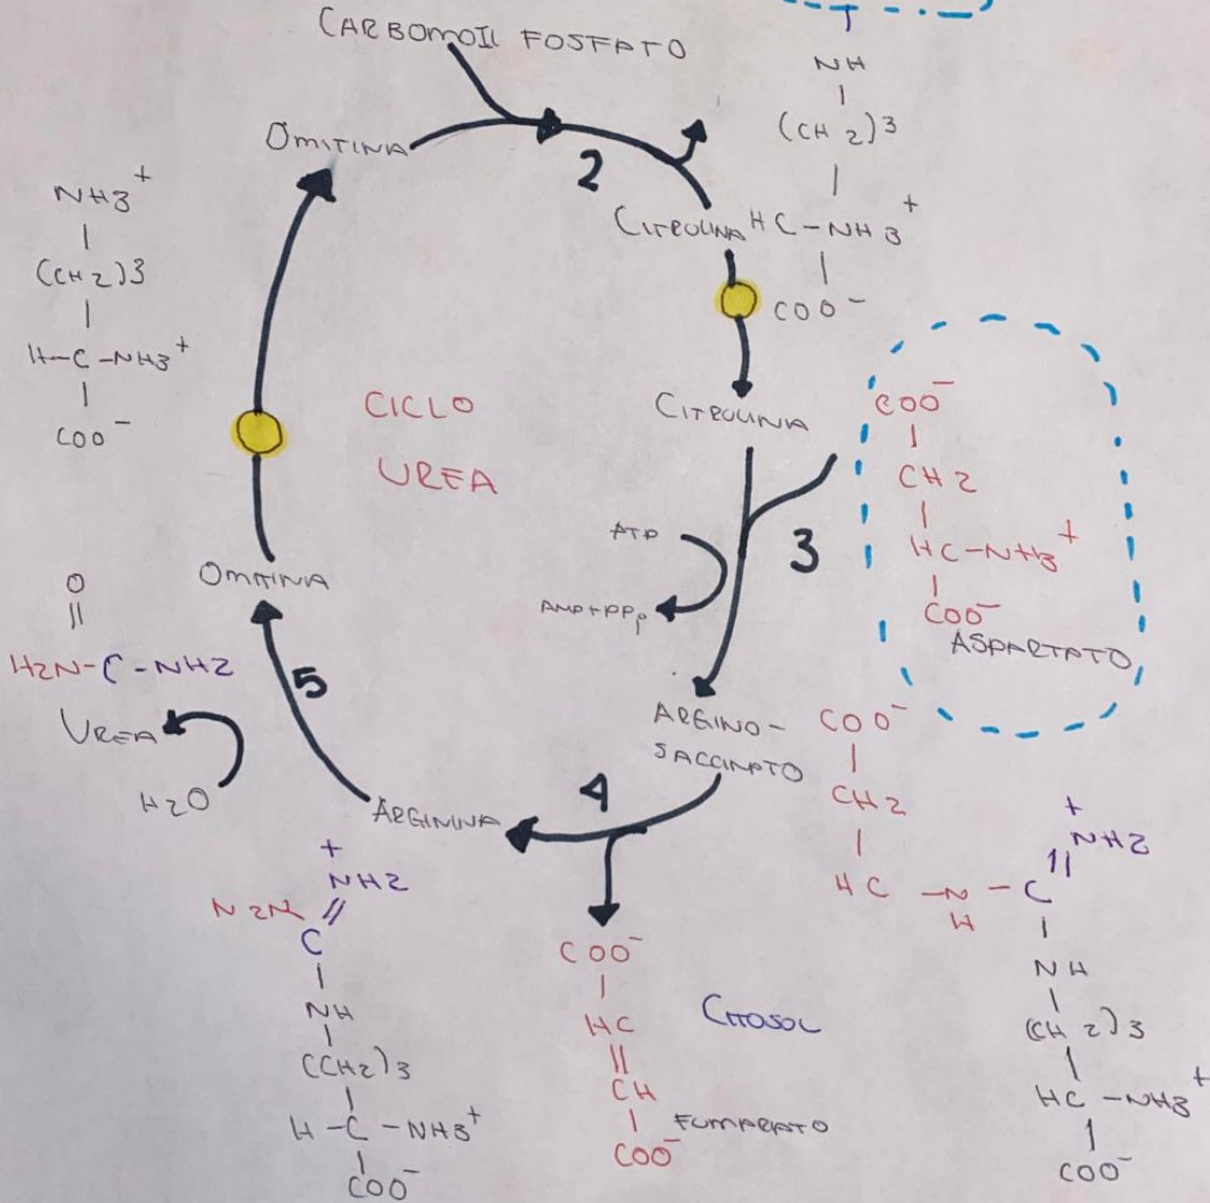 CARBOMOIL FOSFATO
NH
(CH2)3
HC-NH3+
COO-
ORNITINA
2
CITRULLINA
NH3+
(CH2)3
H-C-NH3+
COO-
CICLO
UREA
CITRULLINA
COO-
CH2
HC-NH3+
COO-
ASPARTATO
ATP
AMP+PPi
3
ORNITINA
O
H2N-C-NH2
UREA
H2O
5
ARGINO-
SACCINATO
COO-
CH2
HC-N-C
H
+
NH2
NH
(CH2)3
HC-NH3+
COO-
4
ARGININA
+
NH2
N2N
C
NH
(CH2)3
H-C-NH3+
COO-
COO-
HC
CH
COO-
FUMARATO
CITOSOL